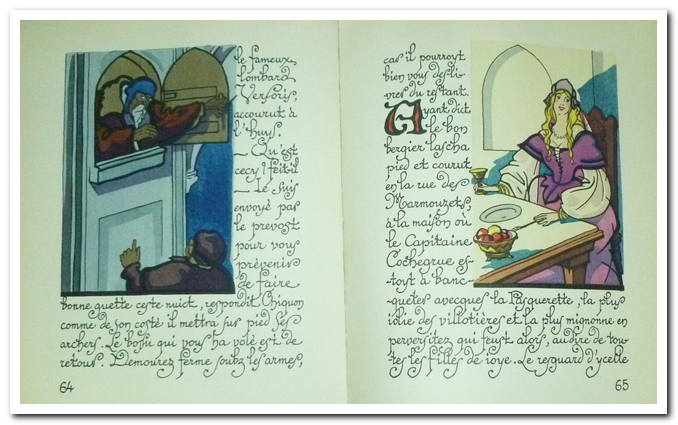 le fameux
lombard
Versoris,
accourut à
l'huys.
— Qu'est
cecy? feit-il
— Je suis
envoyé par
le prevost
pour vous
prévenir
de faire
bonne guette ceste nuict, respondit Chiquon
comme de son costé il mettra sur pied ses
archers. Le bossu qui vous ha volé est de
retour. Demourez ferme soubz les armes,
64
cas il pourroyt
bien vous desli-
vrer du restant.
Ayant dict
le bon
bergier lascha
pied et courut
en la rue des
Marmouzets,
à la maison où
le Capitaine
Cochegrue es-
-toyt à banc-
-queter avecques la Pasquerette, la plus
iolie des villotières et la plus mignonne en
perversitez qui feust alors, au dire de tou-
tes les filles de ioye. Le resguard d'ycelle
65